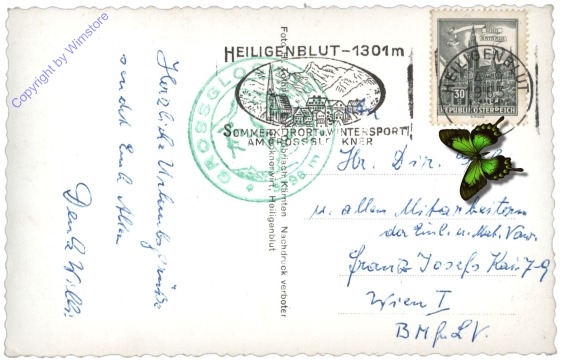 Copyright by Wimstore
HEILIGENBLUT - 1301 m
SOMMERKURORT u. WINTERSPORT
AM GROSSGLOCKNER
HEILIGENBLUT
30
REPUBLIK ÖSTERREICH
GROSSGLO
Kärnten Nachdruck verboten
Heiligenblut
Herzliche Urlaubsgrüße
sendet Euch Allen
An
Hr. Dir.
u. allen Mitarbeitern
der Einl. u. Mat. Verw.
Franz Josefs Kai 7-9
Wien I
B M f L V.